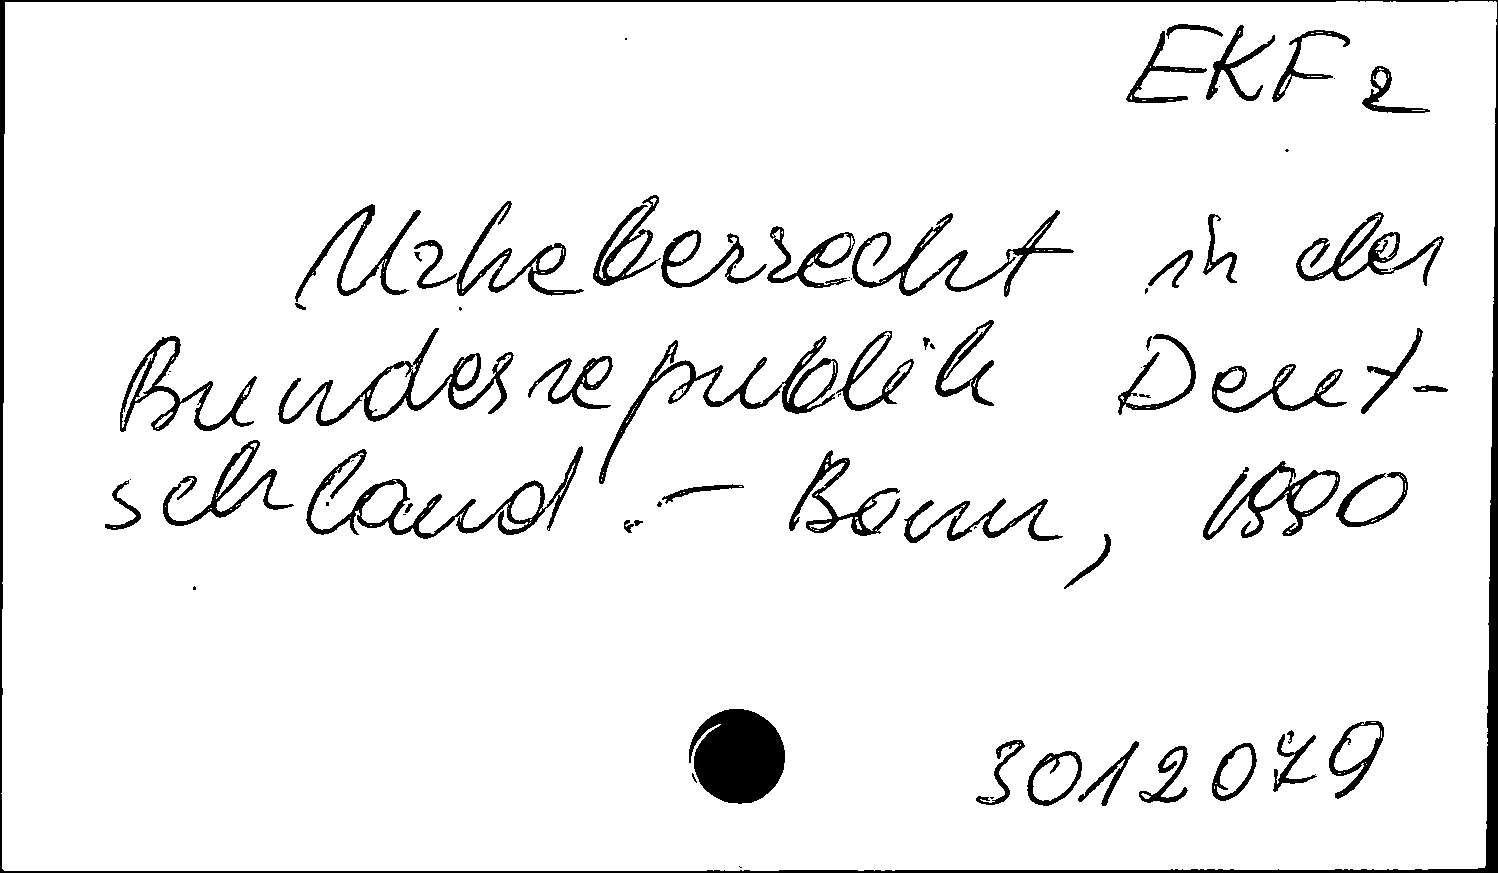 EKF 2
Urheberrecht in der
Bundesrepublik Deut-
schland. - Bonn, 1990
3012079